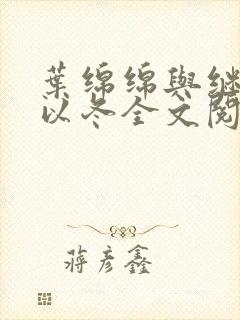 葉綿綿與繼
以冬全文閱
蔣彥鑫